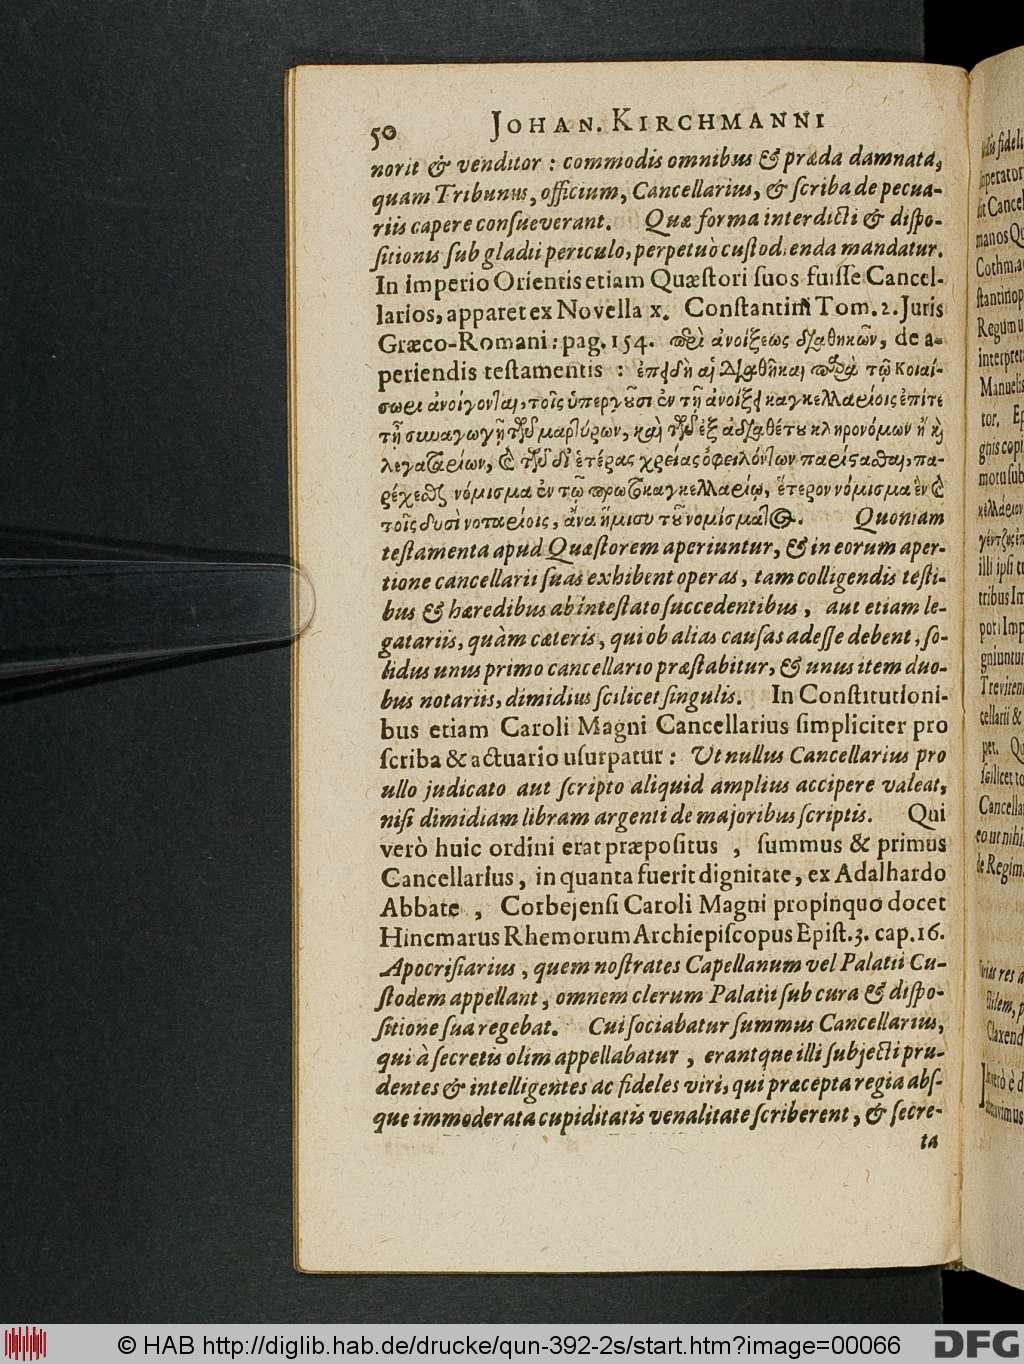 50 JOHAN. KIRCHMANNI
norit & venditor : commodis omnibus & præda damnata,
quam Tribunus, officium, Cancellarius, & ſcriba de pecua-
riis capere conſueverant. Quæ forma interdicti & diſpo-
ſitionis ſub gladii periculo, perpetuò cuſtodienda mandatur.
In imperio Orientis etiam Quæſtori ſuos fuiſſe Cancel-
larios, apparet ex Novella x. Conſtantini Tom. 2. Juris
Græco-Romani : pag. 154. περὶ ἀνοίξεως διαθηκῶν, de a-
periendis teſtamentis : ἐπειδὴ αἱ διαθῆκαι παρὰ τῷ κοιαί-
σωρι ἀνοίγονται, τοῖς ὑπεργοῦσι ἐν τῇ ἀνοίξει καγκελλαρίοις ἐπίτε
τῇ συναγωγῇ τῶν μαρτύρων, καὶ τῶν ἐξ ἀδιαθέτου κληρονόμων ἢ καὶ
λεγαταρίων, καὶ τῶν δι᾽ ἑτέρας χρείας ὀφειλόντων παρίστασθαι, πα-
ρέχεσθαι νόμισμα ἐν τῷ πρωτοκαγκελλαρίῳ, ἕτερον νόμισμα ἓν καὶ
τοῖς δυσὶ νοταρίοις, ἀνα ἥμισυ τοῦ νομίσματος. Quoniam
teſtamenta apud Quæſtorem aperiuntur, & in eorum aper-
tione cancellarii ſuas exhibent operas, tam colligendis teſti-
bus & hæredibus ab inteſtato ſuccedentibus, aut etiam le-
gatariis, quàm cæteris, qui ob alias cauſas adeſſe debent, ſo-
lidus unus primo cancellario præſtabitur, & unus item duo-
bus notariis, dimidius ſcilicet ſingulis. In Conſtitutioni-
bus etiam Caroli Magni Cancellarius ſimpliciter pro
ſcriba & actuario uſurpatur : Ut nullus Cancellarius pro
ullo judicato aut ſcripto aliquid amplius accipere valeat,
niſi dimidiam libram argenti de majoribus ſcriptis. Qui
verò huic ordini erat præpoſitus , ſummus & primus
Cancellarius, in quanta fuerit dignitate, ex Adalhardo
Abbate , Corbejenſi Caroli Magni propinquo docet
Hincmarus Rhemorum Archiepiſcopus Epiſt. 3. cap. 16.
Apocriſiarius, quem noſtrates Capellanum vel Palatii Cu-
ſtodem appellant, omnem clerum Palatii ſub cura & diſpo-
ſitione ſua regebat. Cui ſociabatur ſummus Cancellarius,
qui à ſecretis olim appellabatur , erantque illi ſubjecti pru-
dentes & intelligentes ac fideles viri, qui præcepta regia abſ-
que immoderata cupiditatis venalitate ſcriberent, & ſecre-
ta
© HAB http://diglib.hab.de/drucke/qun-392-2s/start.htm?image=00066
DFG